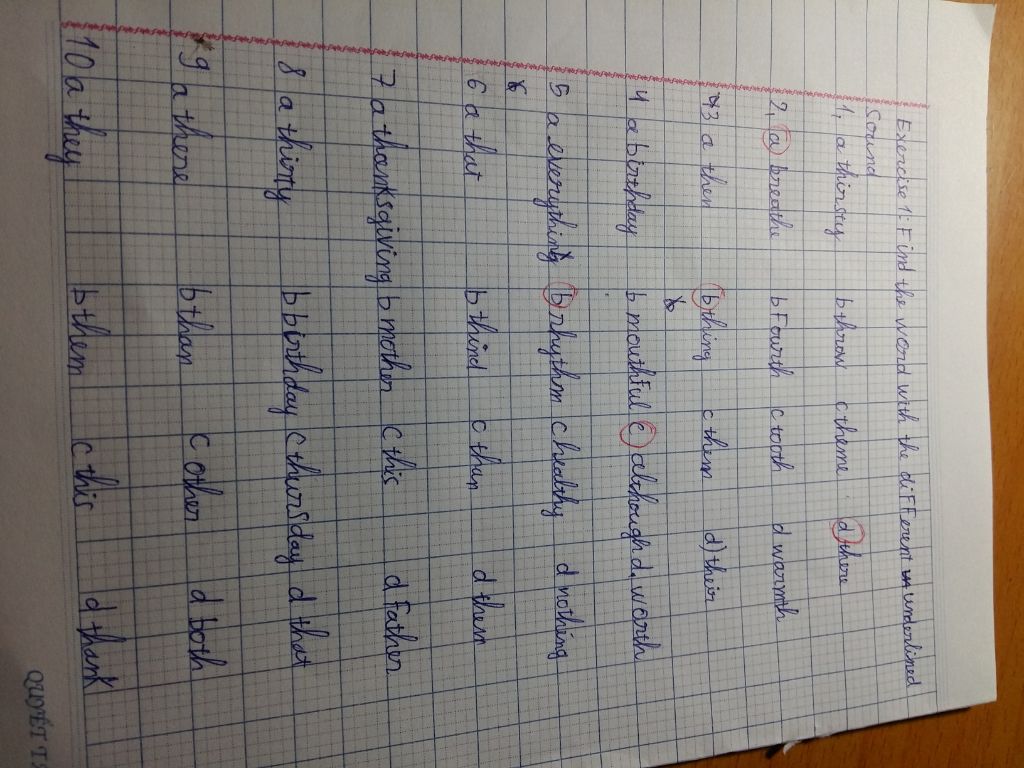 Exercise 1: Find the word with the diFFerent underlined
Sound
1, a thirsty b throw c theme d) there
2, a breathe b Fourth c tooth d warmth
3 a then b thing c them d) their
4 a birthday b mouthful c although d, worth
5 a everything b rhythm c healthy d nothing
6 a that b thind c thin d them
7 a thanksgiving b mother c this d Father
8 a thirty b birthday c thursday d that
9 a there b than c other d both
10 a they b them c this d thank
QUYẾT